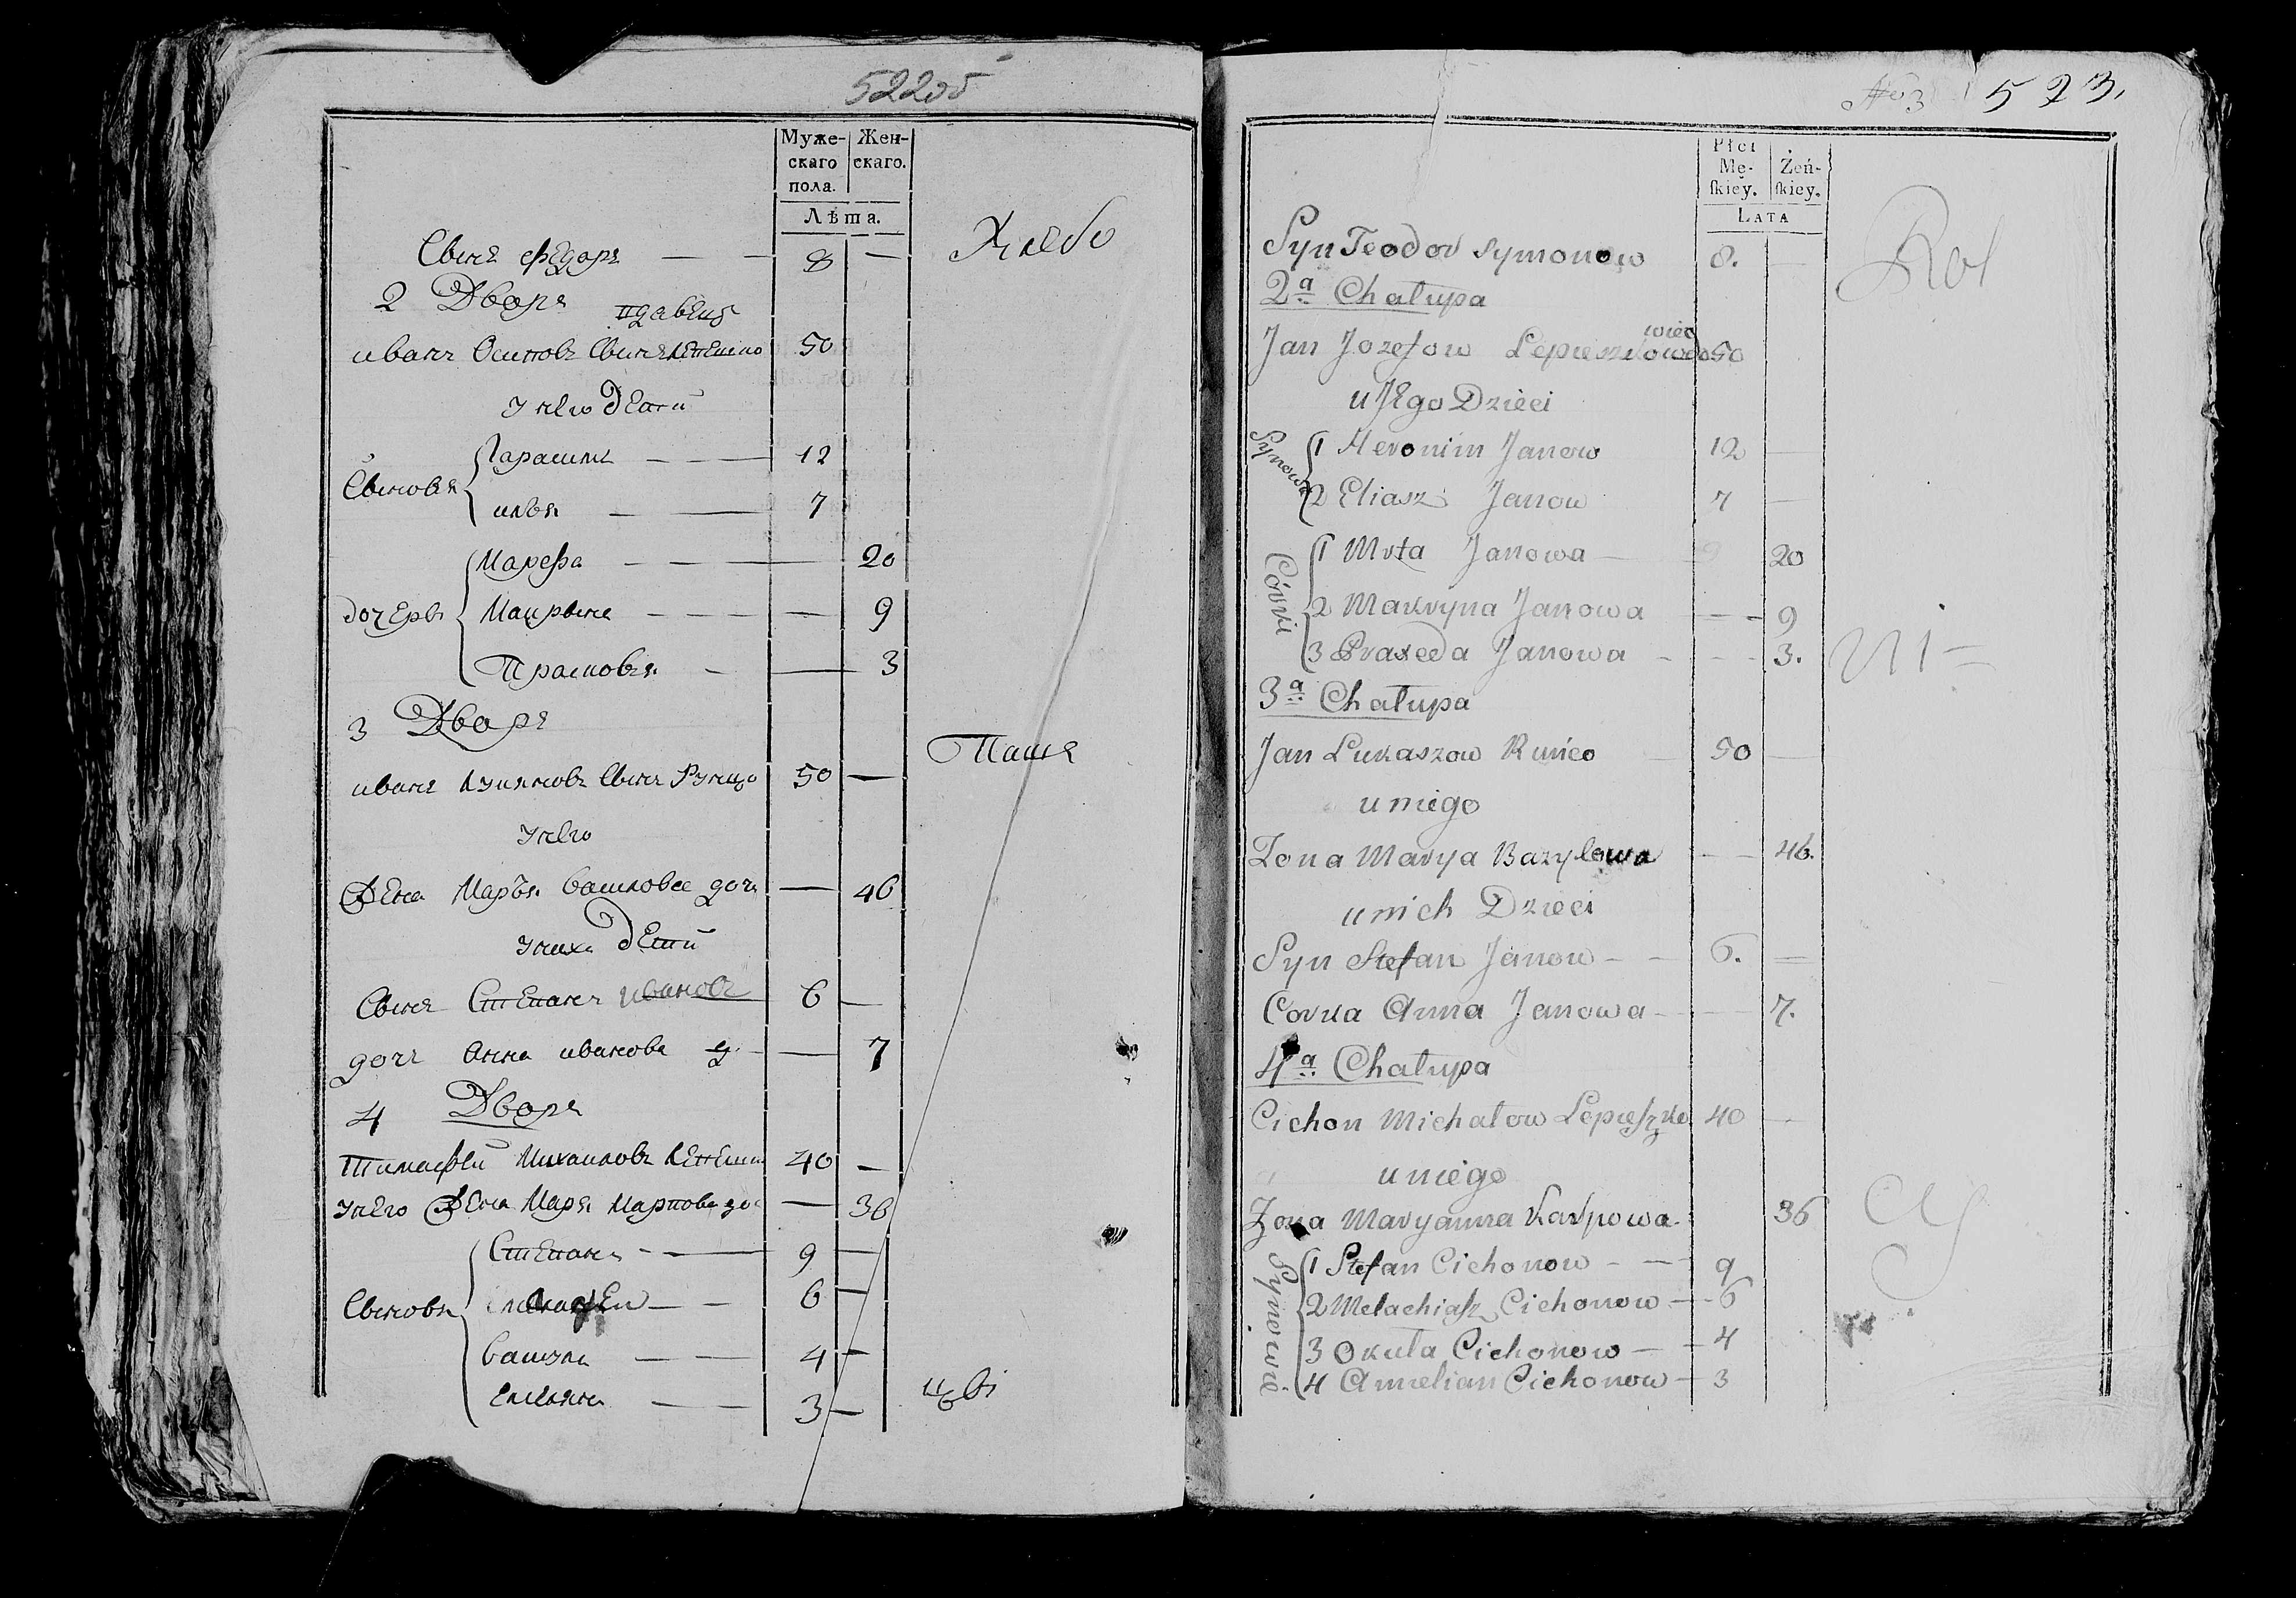 522об
Муже-
скаго
пола.
Жен-
скаго.
Лѣта.
Сынъ Федоръ — — 8 —
Хлебо
2 Дворъ
вдавецъ
иванъ Осиповъ Сынъ Лепешко 50
у него дети
Сыновья
Гарасимъ — — 12
илья — — 7
дочерьи
Марфа — — — — 20
Макрына — — — — 9
Прасковья — — 3
3 Дворъ
Паше
иванъ Лукяновъ Сынъ Рунцо 50 —
у него
Жена Марья василева дочь — 46
у нихъ дети
Сынъ Степанъ ивановъ 6 —
дочь анна иванова д — — 7
4 Дворъ
Тимофей Михаиловъ Лепешко 40 —
у него Жена Марья Карпова до — 36
Сыновья
Степанъ — — 9 —
6 —
4 —
Емельянъ — — 3 —
цы
№ 3 523.
Płci
Mę-
ſkiey.
Żeń-
ſkiey.
LATA
Syn Teodor Symonow 8. —
Rol
2a Chałupa
wiec
Jan Jozefow Lepieszko wdo 50
u Jego Dzieci
Synowie
1 Heronim Janow 12 —
2 Eliasz Janow 7 —
Córki
1 Mrta Janowa — 20
2 Makryna Janowa — — 9
3 Praxeda Janowa — — — 3.
ni=
3a Chałupa
Jan Lukaszow Runco 50 —
u niego
Zona Marya Bazylowa — — 46.
u nich Dzieci
Syn Stefan Janow — — 6. =
Corka Anna Janowa — — 7.
4a Chałupa
Cichon Michałow Lepieſzko 40 —
u niego
Zona Maryanna Karpowa. 36
Cy
Synowie.
1 Stefan Cichonow — — 9
2 Melachiaſz Cichonow — 6
3 Okuła Cichonow — 4
4 Amelian Cichonow — 3